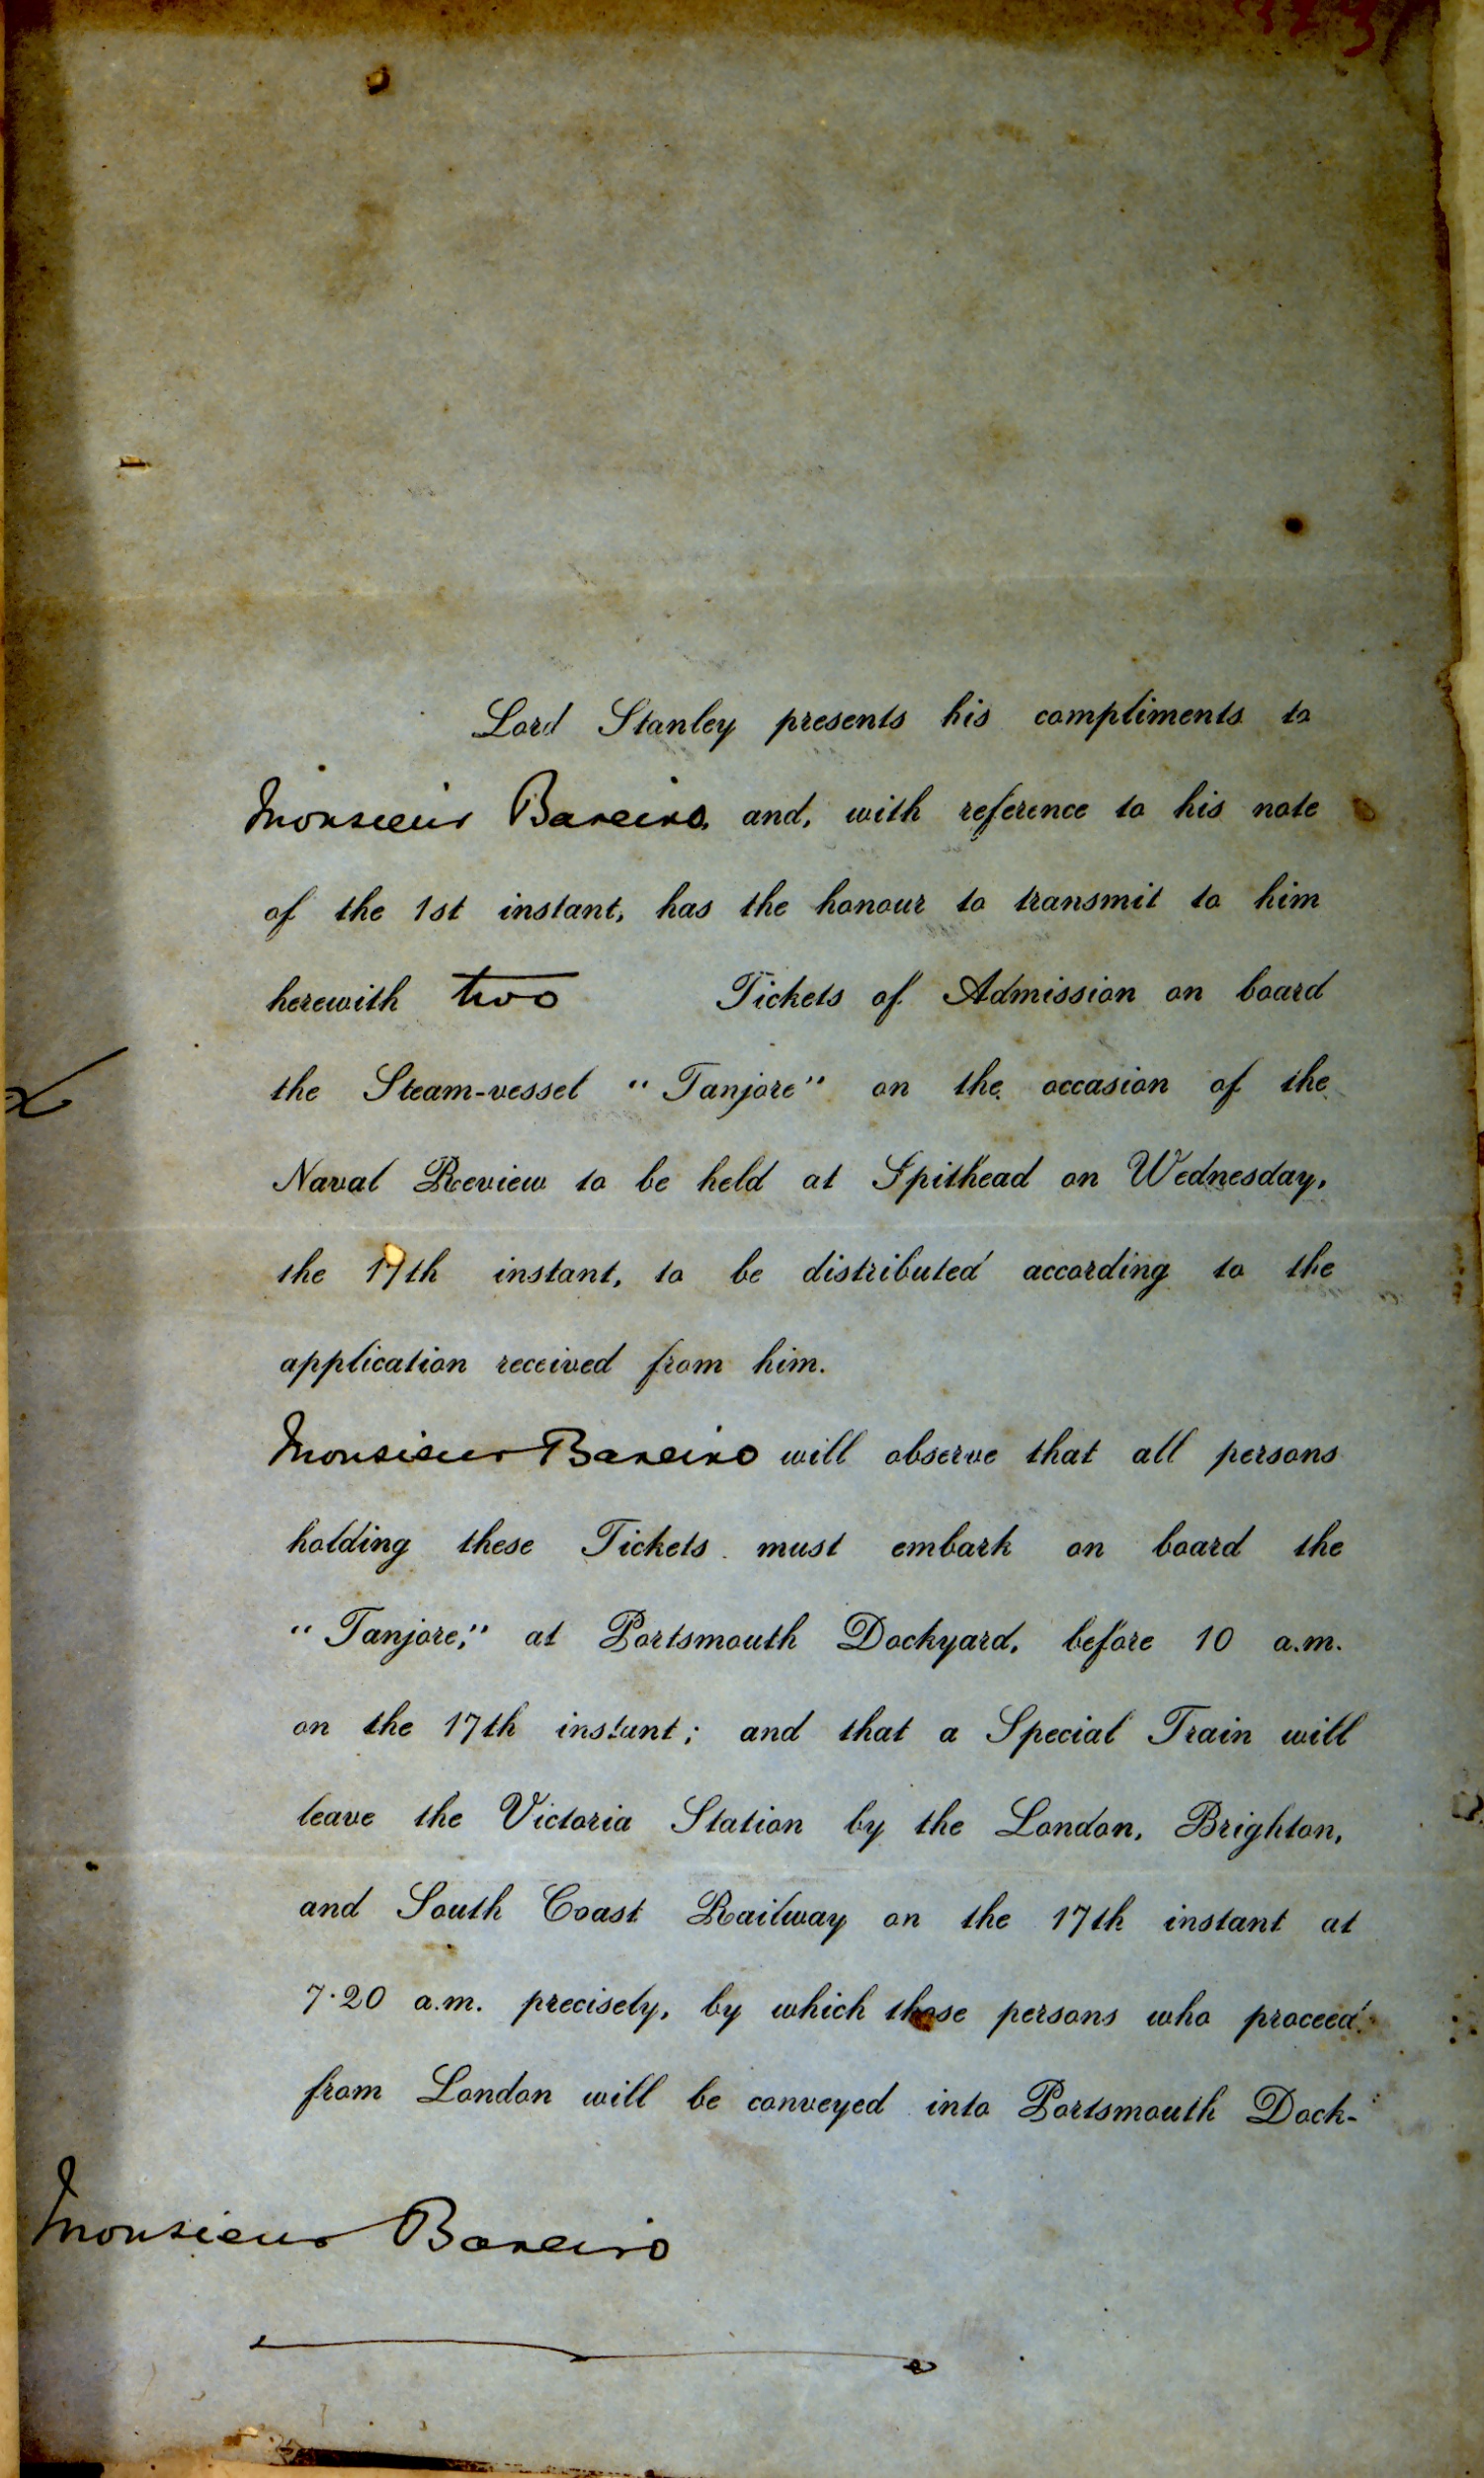 Lord Stanley presents his compliments to
Monsieur Bareiro, and, with reference to his note
of the 1st instant, has the honour to transmit to him
herewith two Tickets of Admission on board
the Steam-vessel "Tanjore" on the occasion of the
Naval Review to be held at Spithead on Wednesday,
the 17th instant, to be distributed according to the
application received from him.
Monsieur Bareiro will observe that all persons
holding these Tickets must embark on board the
"Tanjore," at Portsmouth Dockyard, before 10 a.m.
on the 17th instant; and that a Special Train will
leave the Victoria Station by the London, Brighton,
and South Coast Railway on the 17th instant at
7·20 a.m. precisely, by which those persons who proceed
from London will be conveyed into Portsmouth Dock-
Monsieur Bareiro